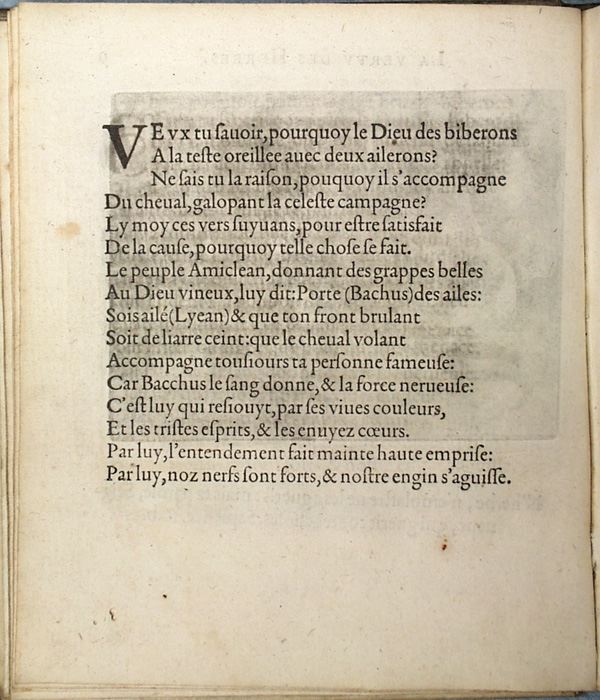 VEVX tu ſauoir, pourquoy le Dieu des biberons
A la teſte oreillee auec deux ailerons?
Ne ſais tu la raiſon, pouquoy il s'accompagne
Du cheual, galopant la celeſte campagne?
Ly moy ces vers ſuyuans, pour eſtre ſatisfait
De la cauſe, pourquoy telle choſe ſe fait.
Le peuple Amiclean, donnant des grappes belles
Au Dieu vineux, luy dit: Porte (Bachus) des ailes:
Sois ailé (Lyean) & que ton front brulant
Soit de liarre ceint: que le cheual volant
Accompagne touſiours ta perſonne fameuſe:
Car Bacchus le ſang donne, & la force nerueuſe:
C'eſt luy qui reſiouyt, par ſes viues couleurs,
Et les triſtes eſprits, & les enuyez cœurs.
Par luy, l'entendement fait mainte haute empriſe:
Par luy, noz nerfs ſont forts, & noſtre engin s'aguiſſe.